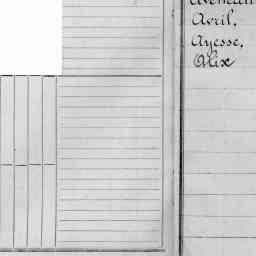 Avril,
Ayesse,
Alix